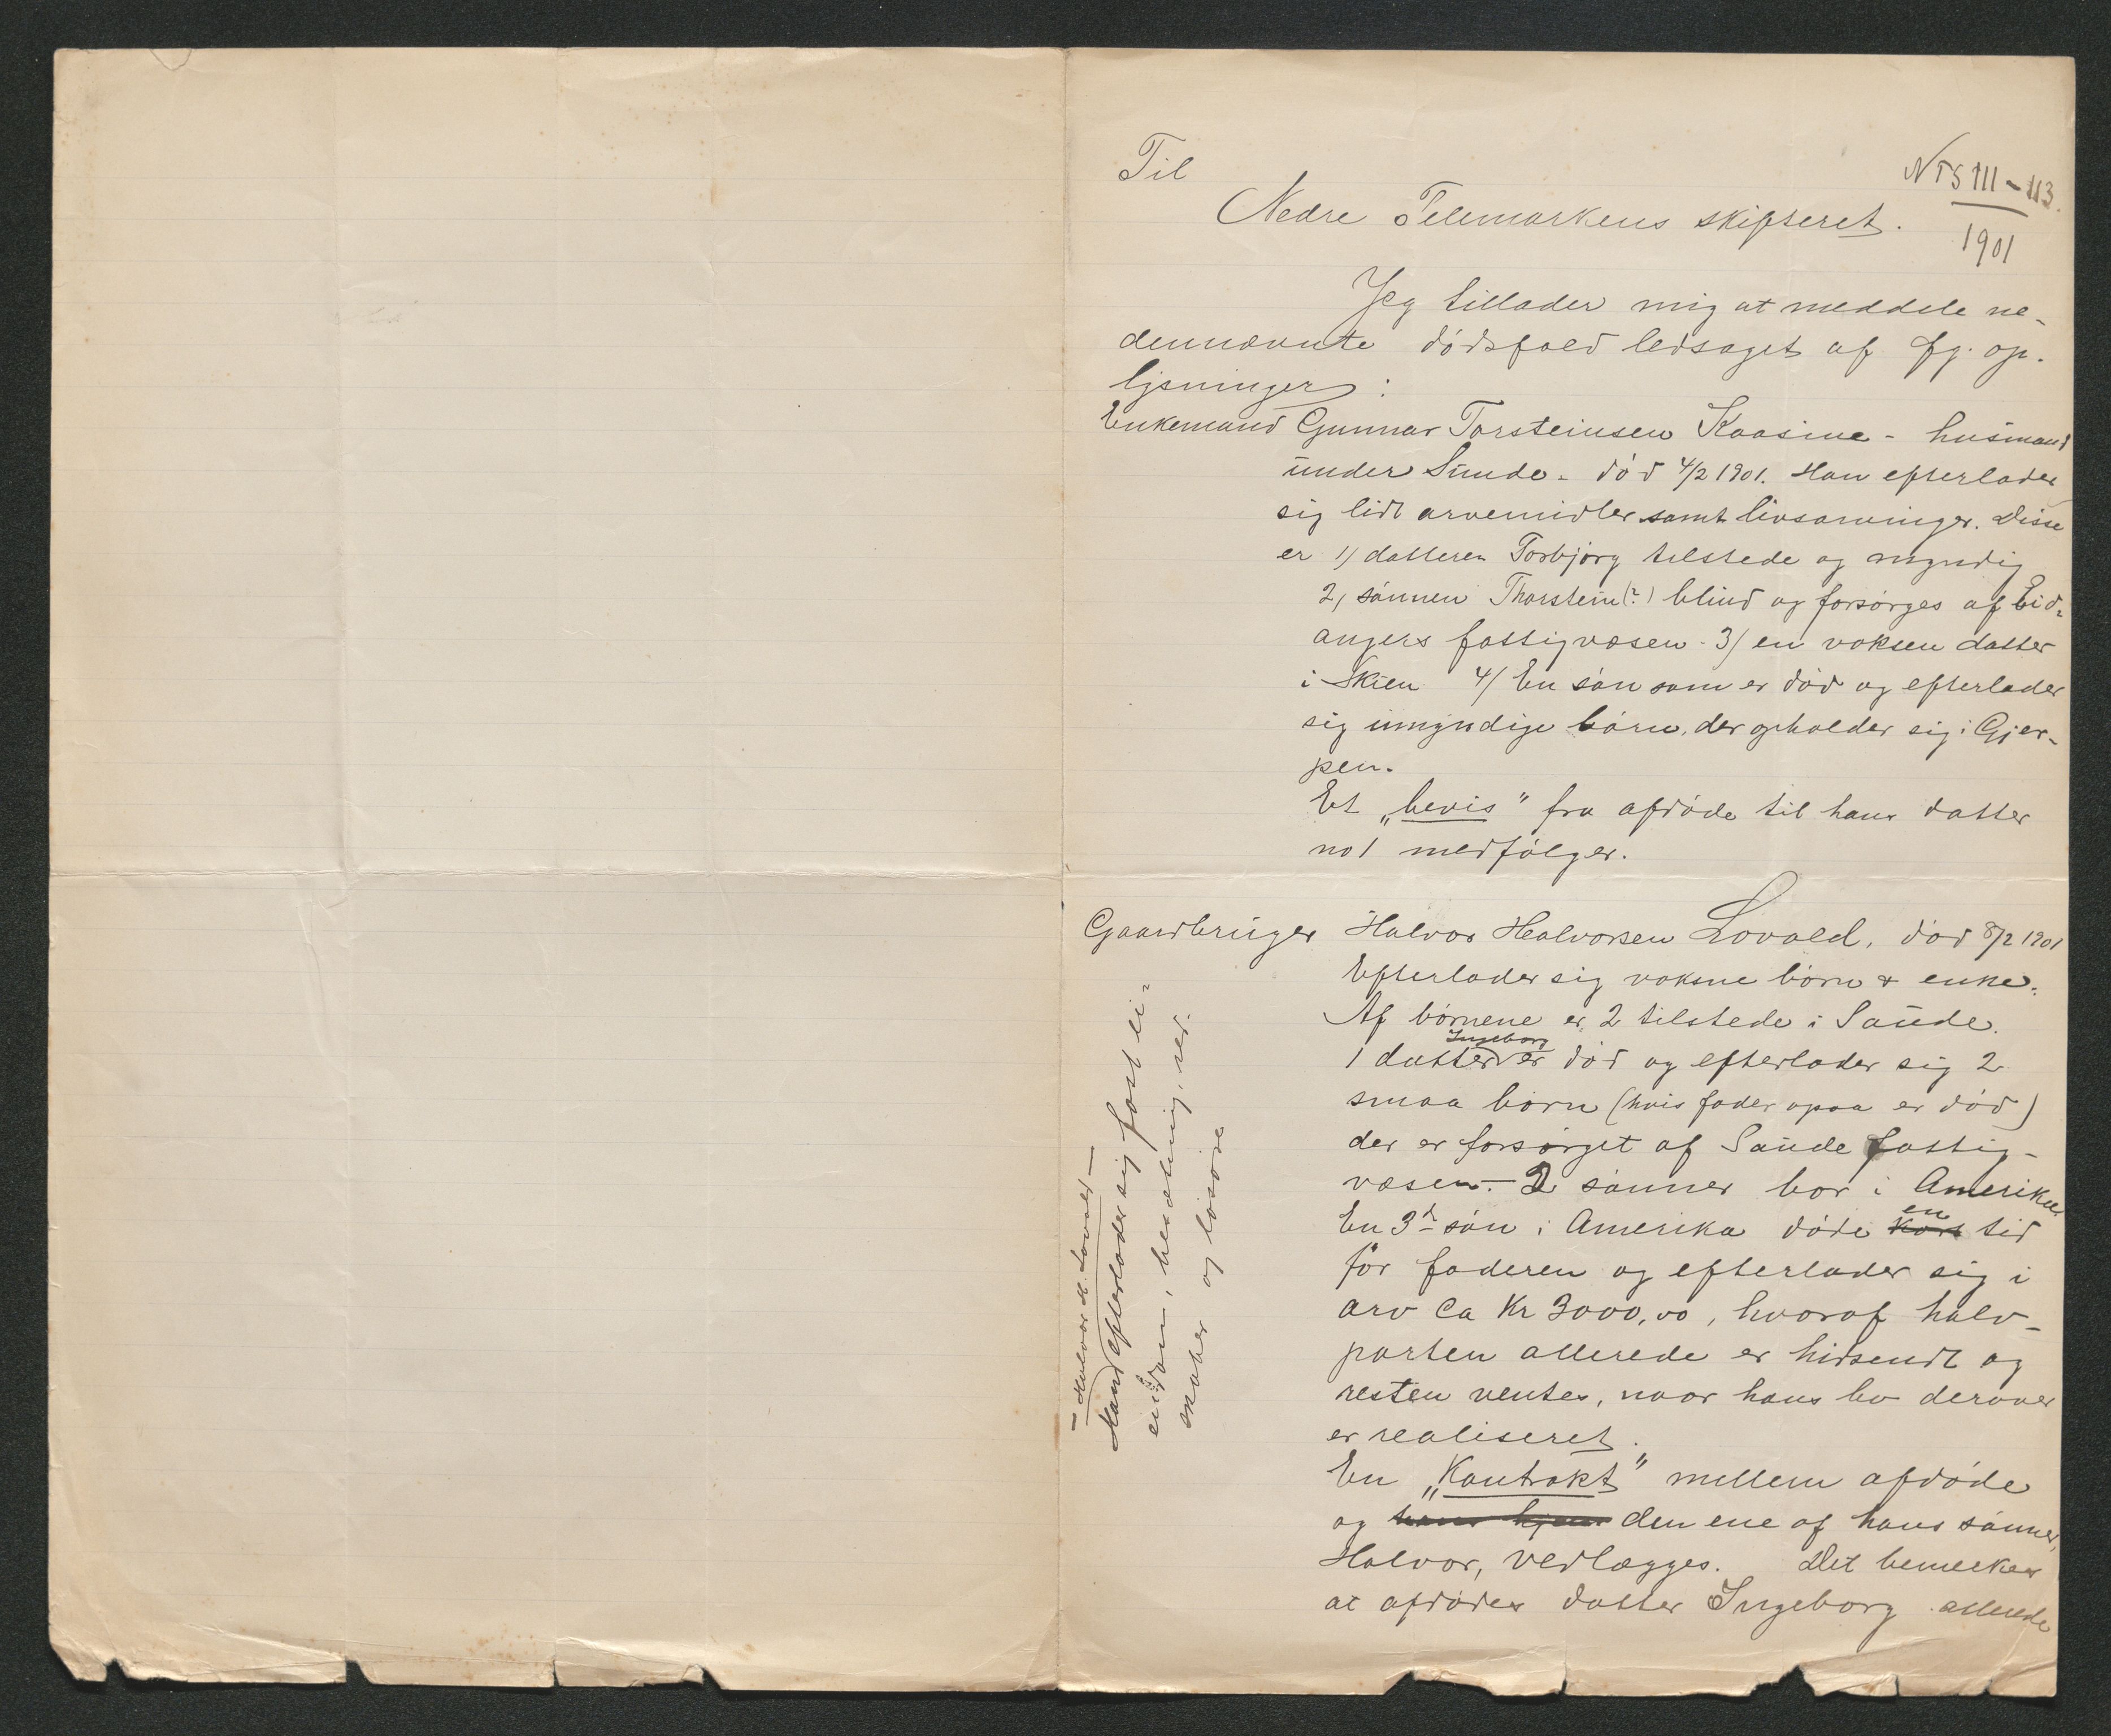 NTS III - 113.
1901
Til
Nedre Telemarkens skifteret.
Jeg tillader mig at meddele ne-
dennævnte dødsfald ledsaget af fg. op-
lysninger:
Enkemand Gunnar Torsteinsen Kaasine - husmand
under Sunde - død 4/2 1901. Han efterlader
sig lidt arvemidler samt livsarvinger. Disse
er 1) datteren Torbjørg tilstede og myndig
2, sønnen Thorstein(?) blind og forsørges af Eid-
angers fattigvæsen - 3/ en voksen datter
i Skien 4/ En søn som er død og efterlader
sig umyndige børn, der opholder sig i Gjer-
pen.
Et „bevis" fra afdøde til hans datter
no 1 medfølger.
Gaardbruger Halvor Halvorsen Lovald, død 8/2 1901
Efterlader sig voksne børn & enke.
Af børnene er 2 tilstede i Saude.
Ingeborg
1 datter er død og efterlader sig 2
smaa børn (hvis fader ogsaa er død)
der er forsørget af Saude fattig-
væsen. - 2 sønner bor i Amerika
En 3d søn i Amerika døde kort en tid
før faderen og efterlader sig i
arv ca Kr 3000,00, hvoraf halv-
parten allerede er hidsendt og
resten ventes, naar hans bo derover
er realiseret.
En „Kontrakt" mellem afdøde
og den ene af hans sønner,
Halvor, vedlægges. Det bemerkes
at afdødes datter Ingeborg allerede
- Halvor H. Lovald -
Mand efterlader sig fast ei-
endom, besætning, red-
skaber og løsøre